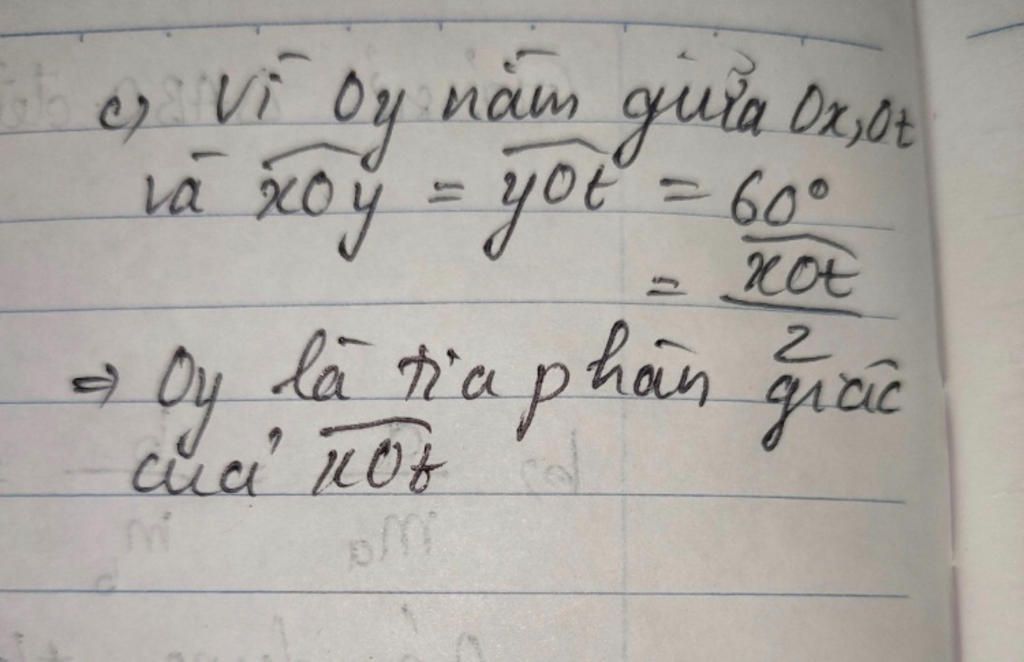 c, Vì Oy nằm giữa Ox, Ot
và xOy = yOt = 60°
= xOt / 2
=> Oy là tia phân giác
của xOt